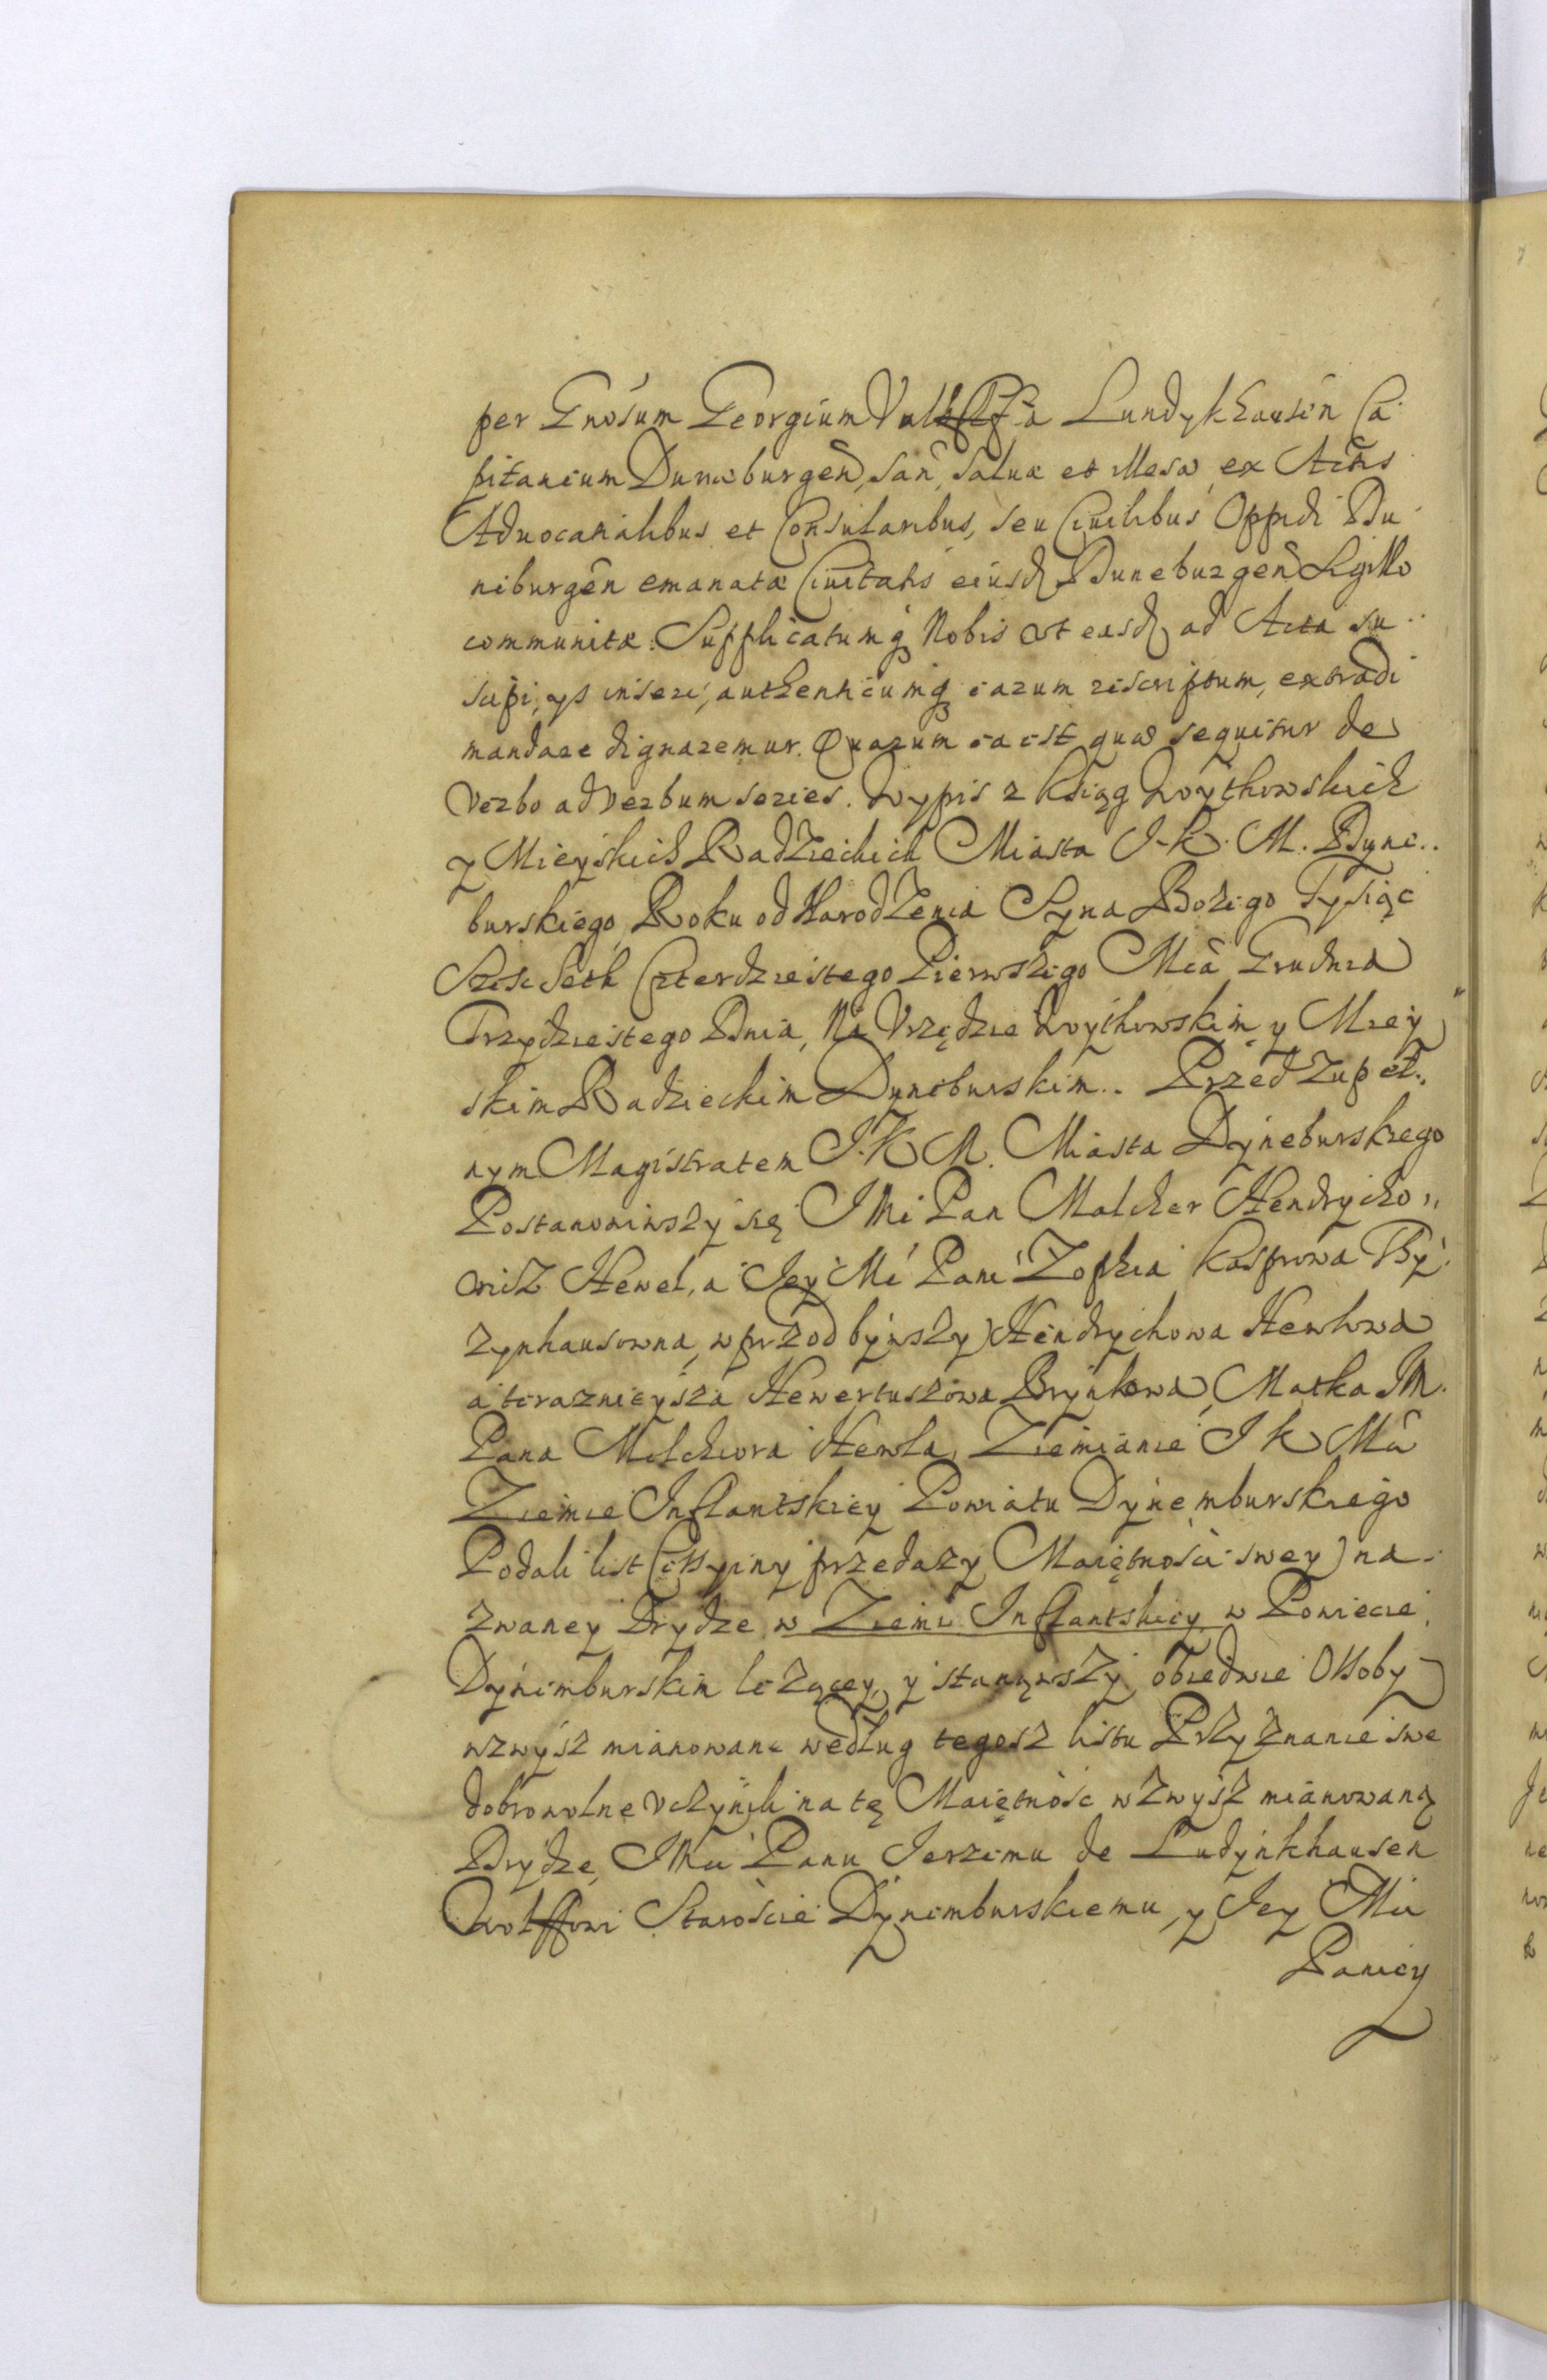 per Gnosum Georgium Vulff a Lundykhausen Ca
pitaneum Duneburgen, san, saluæ et illesæ ex Actis
Aduocatialibus et Consularibus, seu Ciuilibus Oppidi Du
neburgen emanatæ Ciuitatis eiusd Duneburgen Sigillo
communitæ. Supplicatumq Nobis vt easd ad Acta su
scipi, ys inseri, authenticumq earum rescriptum, extradi
mandare dignaremur. Quarum ea est quæ sequitur de
Verbo ad Verbum series. Wypis z Ksiąg Woythowskich
y Mieyskich Radzieckich Miasta J. K. M. Dyne..
burskiego Roku od Narodzenia Syna Bożego Tysiąc
Szesc Seth Czterdziestego Pierwszego Mca Grudnia
Trzydziestego Dnia, Na Vrzędzie Woythowskim y Miey
skim Radzieckim Dyneburskim.. Przed zupeł..
nym Magistratem J. K. M. Miasta Dyneburskiego
Postanowiwszy się J Mć Pan Malcher Hendrycho,,
wicz Hewel, a Jey Mć Pani Zophia Kasprowa By
zynhausowna, wprzod bywszy Hendrychowa Hewlowa
a teraznieysza Hewertuszowa Brynkowa, Matka JM.
Pana Melchiora Hewla, Ziemianie J K Mci
Ziemie Inflantskiey Powiatu Dynemburskiego
Podali list Cessyiny przedazy Maiętności swey na
zwaney Drydze w Ziemi Inflantskiey w Powiecie
Dynemburskim leżącey, y stanąwszy obiedwie Ossoby
wzwysz mianowane według tegosz listu Przyznanie swe
dobrowolne vczynili na tę Maiętnosc wzwysz mianowaną
Drydzę JMci Panu Jerzemu de Ludynkhausen
Wolffowi Staroscie Dynemburskiemu, y Jey Mci
Paniey